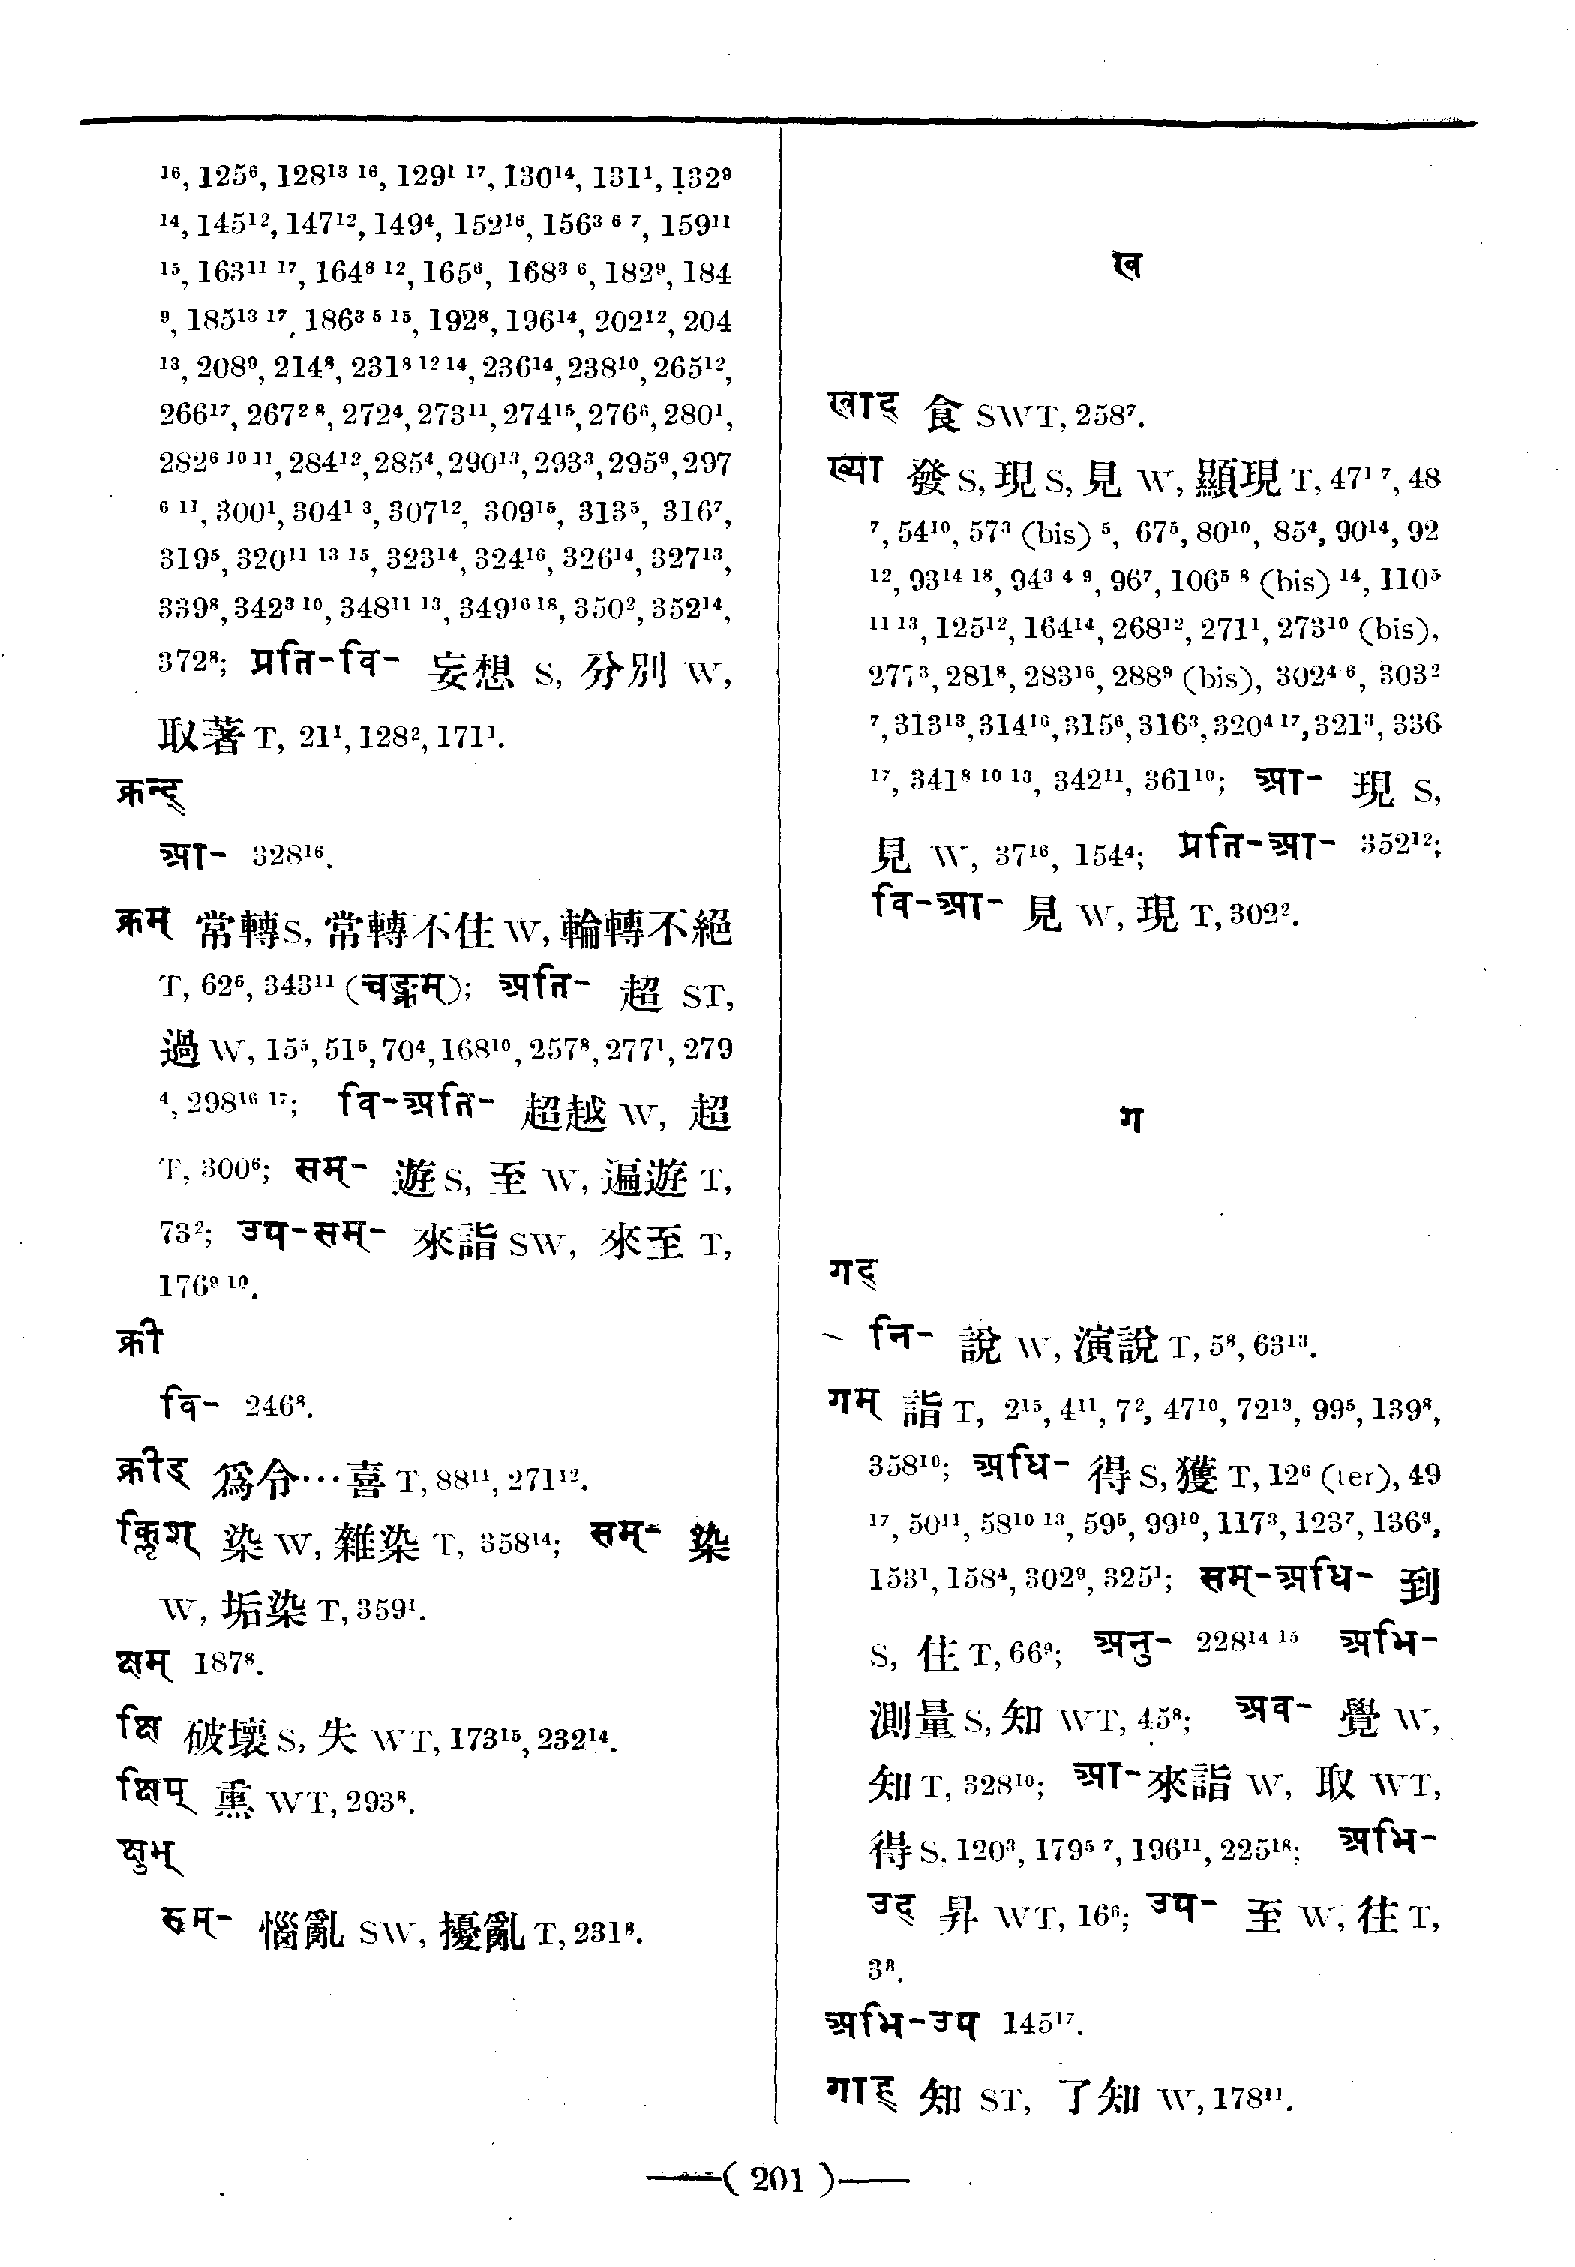 ¹⁶, 125⁶, 128¹³ ¹⁶, 129¹ ¹⁷, 130¹⁴, 131¹, 132⁹
¹⁴, 145¹², 147¹², 149⁴, 152¹⁶, 156³ ⁶ ⁷, 159¹¹
¹⁵, 163¹¹ ¹⁷, 164⁸ ¹², 165⁶, 168³ ⁶, 182⁹, 184
⁹, 185¹³ ¹⁷, 186³ ⁵ ¹⁵, 192⁸, 196¹⁴, 202¹², 204
¹³, 208⁹, 214⁸, 231⁸ ¹² ¹⁴, 236¹⁴, 238¹⁰, 265¹²,
266¹⁷, 267² ⁸, 272⁴, 273¹¹, 274¹⁵, 276⁶, 280¹,
282⁶ ¹⁰ ¹¹, 284¹², 285⁴, 290¹³, 293³, 295⁹, 297
⁶ ¹¹, 300¹, 304¹ ³, 307¹², 309¹⁵, 313⁵, 316⁷,
319⁵, 320¹¹ ¹³ ¹⁵, 323¹⁴, 324¹⁶, 326¹⁴, 327¹³,
339⁸, 342³ ¹⁰, 348¹¹ ¹³, 349¹⁶ ¹⁸, 350², 352¹⁴,
372⁸; प्रति-वि- 妄想 S, 分別 W,
取著 T, 21¹, 128², 171¹.
क्रन्द्
आ- 328¹⁶.
क्रम् 常轉 S, 常轉不住 W, 輪轉不絕
T, 62⁶, 343¹¹ (चङ्क्रम्); अति- 超 ST,
過 W, 15⁵, 51⁵, 70⁴, 168¹⁰, 257⁸, 277¹, 279
⁴, 298¹⁶ ¹⁷; वि-अति- 超越 W, 超
T, 300⁶; सम्- 遊 S, 至 W, 遍遊 T,
73²; उप-सम्- 來詣 SW, 來至 T,
176⁹ ¹⁰.
क्री
वि- 246⁸.
क्रीड् 爲令…喜 T, 88¹¹, 271¹².
क्लिश् 染 W, 雜染 T, 358¹⁴; सम्- 染
W, 垢染 T, 359¹.
क्षम् 187⁸.
क्षि 破壞 S, 失 WT, 173¹⁵, 232¹⁴.
क्षिप् 熏 WT, 293⁸.
क्षुभ्
सम्- 惱亂 SW, 擾亂 T, 231⁸.
ख
खाद् 食 SWT, 258⁷.
ख्या 發 S, 現 S, 見 W, 顯現 T, 47¹ ⁷, 48
⁷, 54¹⁰, 57³ (bis) ⁵, 67⁵, 80¹⁰, 85⁴, 90¹⁴, 92
¹², 93¹⁴ ¹⁸, 94³ ⁴ ⁹, 96⁷, 106⁵ ⁸ (bis) ¹⁴, 110⁵
¹¹ ¹³, 125¹², 164¹⁴, 268¹², 271¹, 273¹⁰ (bis),
277³, 281⁸, 283¹⁶, 288⁹ (bis), 302⁴ ⁶, 303²
⁷, 313¹³, 314¹⁶, 315⁶, 316³, 320⁴ ¹⁷, 321³, 336
¹⁷, 341⁸ ¹⁰ ¹³, 342¹¹, 361¹⁰; आ- 現 S,
見 W, 37¹⁶, 154⁴; प्रति-आ- 352¹²;
वि-आ- 見 W, 現 T, 302².
ग
गद्
नि- 說 W, 演說 T, 5⁸, 63¹³.
गम् 詣 T, 2¹⁵, 4¹¹, 7², 47¹⁰, 72¹³, 99⁵, 139⁸,
358¹⁰; अधि- 得 S, 獲 T, 12⁶ (ter), 49
¹⁷, 50¹¹, 58¹⁰ ¹³, 59⁵, 99¹⁰, 117³, 123⁷, 136⁹,
153¹, 158⁴, 302⁹, 325¹; सम्-अधि- 到
S, 住 T, 66⁹; अनु- 228¹⁴ ¹⁵ अभि-
測量 S, 知 WT, 45⁸; अव- 覺 W,
知 T, 328¹⁰; आ- 來詣 W, 取 WT,
得 S, 120³, 179⁵ ⁷, 196¹¹, 225¹⁸; अभि-
उद् 昇 WT, 16⁶; उप- 至 W, 往 T,
3⁸.
अभि-उप 145¹⁷.
गाह् 知 ST, 了知 W, 178¹¹.
( 201 )